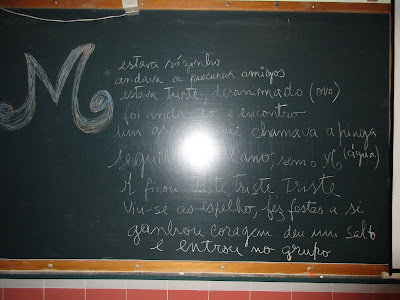 M
estava sózinho
andava a procurar amigos
estava triste, desanimado (ovo)
foi andando e encontro
um que chamava a pinga
(água)
seguiu cano, sem o M
M ficou triste triste triste
Viu-se ao espelho, fez festas a si
ganhou coragem deu um salto
e entrou no grupo